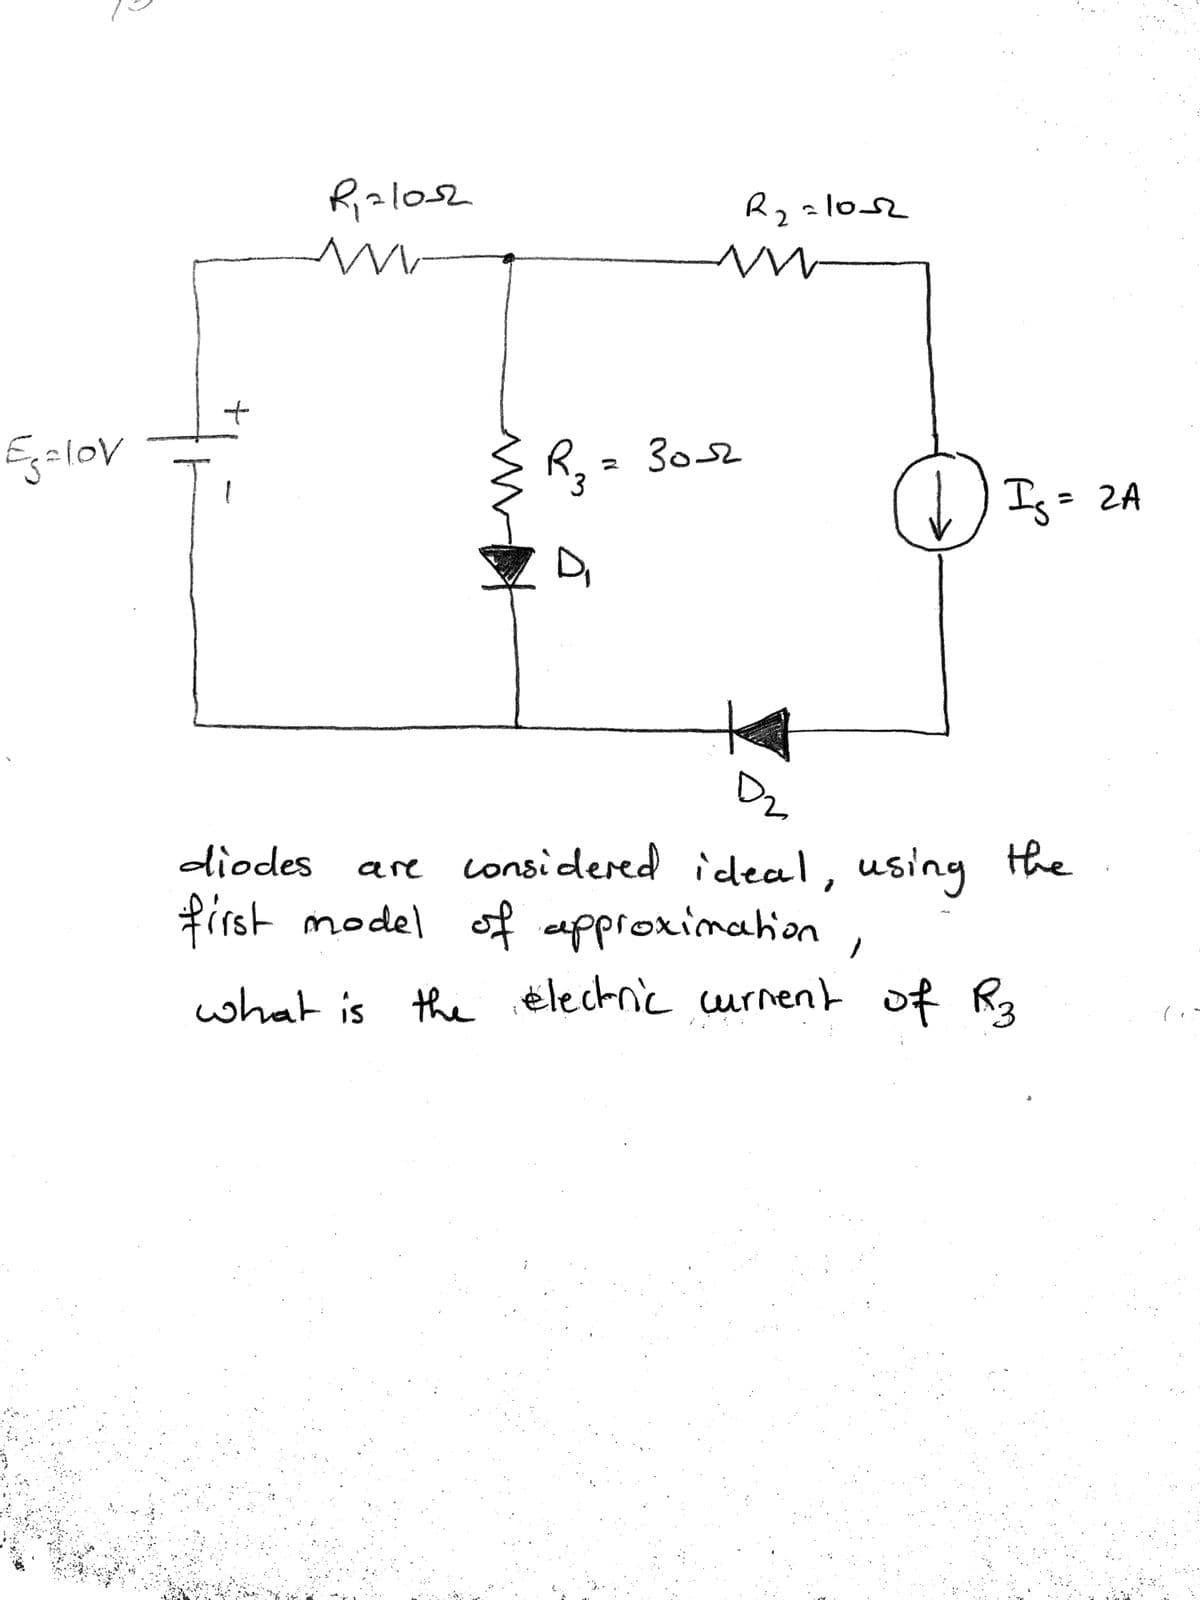 R₁=10Ω
R₂=10Ω
+
Es=10V
R₃ = 30Ω
Is = 2A
D₁
D₂
diodes are considered ideal, using the
first model of approximation,
what is the electric current of R₃